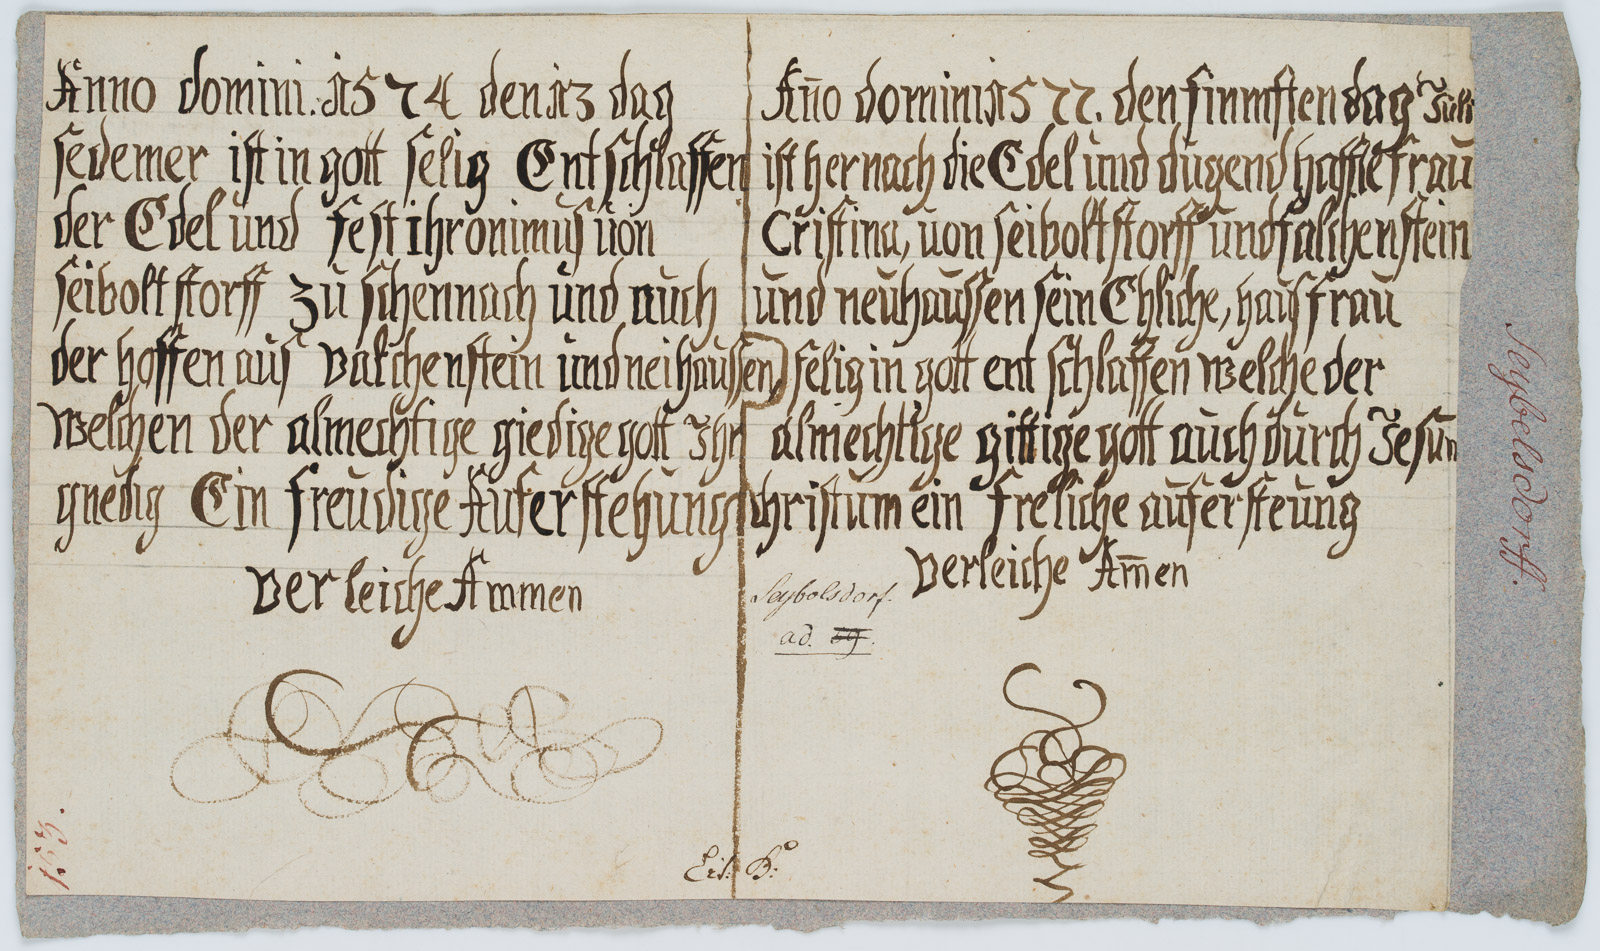 Anno domini. 1574 den 13 dag
sedemer ist in gott selig Entschlaffen
der Edel und fest ihronimus von
seiboltstorff zu schennach und auch
der hoffen aus valchenstein und neihaussen
welchen der almechtige giedige gott Ihn
gnedig Ein freudige Auferstehung
verleiche Ammen
Año domini 1577. den finmften dag Juli
ist hernach die Edel und dugendhaffte frau
Cristina, von seiboltstorff und falchenstein
und neuhaussen sein Ehliche, hausfrau
selig in gott entschlaffen welche der
almechtige gittige gott auch durch Jesum
christum ein freliche aufersteung
verleiche Am̄en
Seybolsdorf.
ad. 69.
Lit: B:
Seybelsdorff.